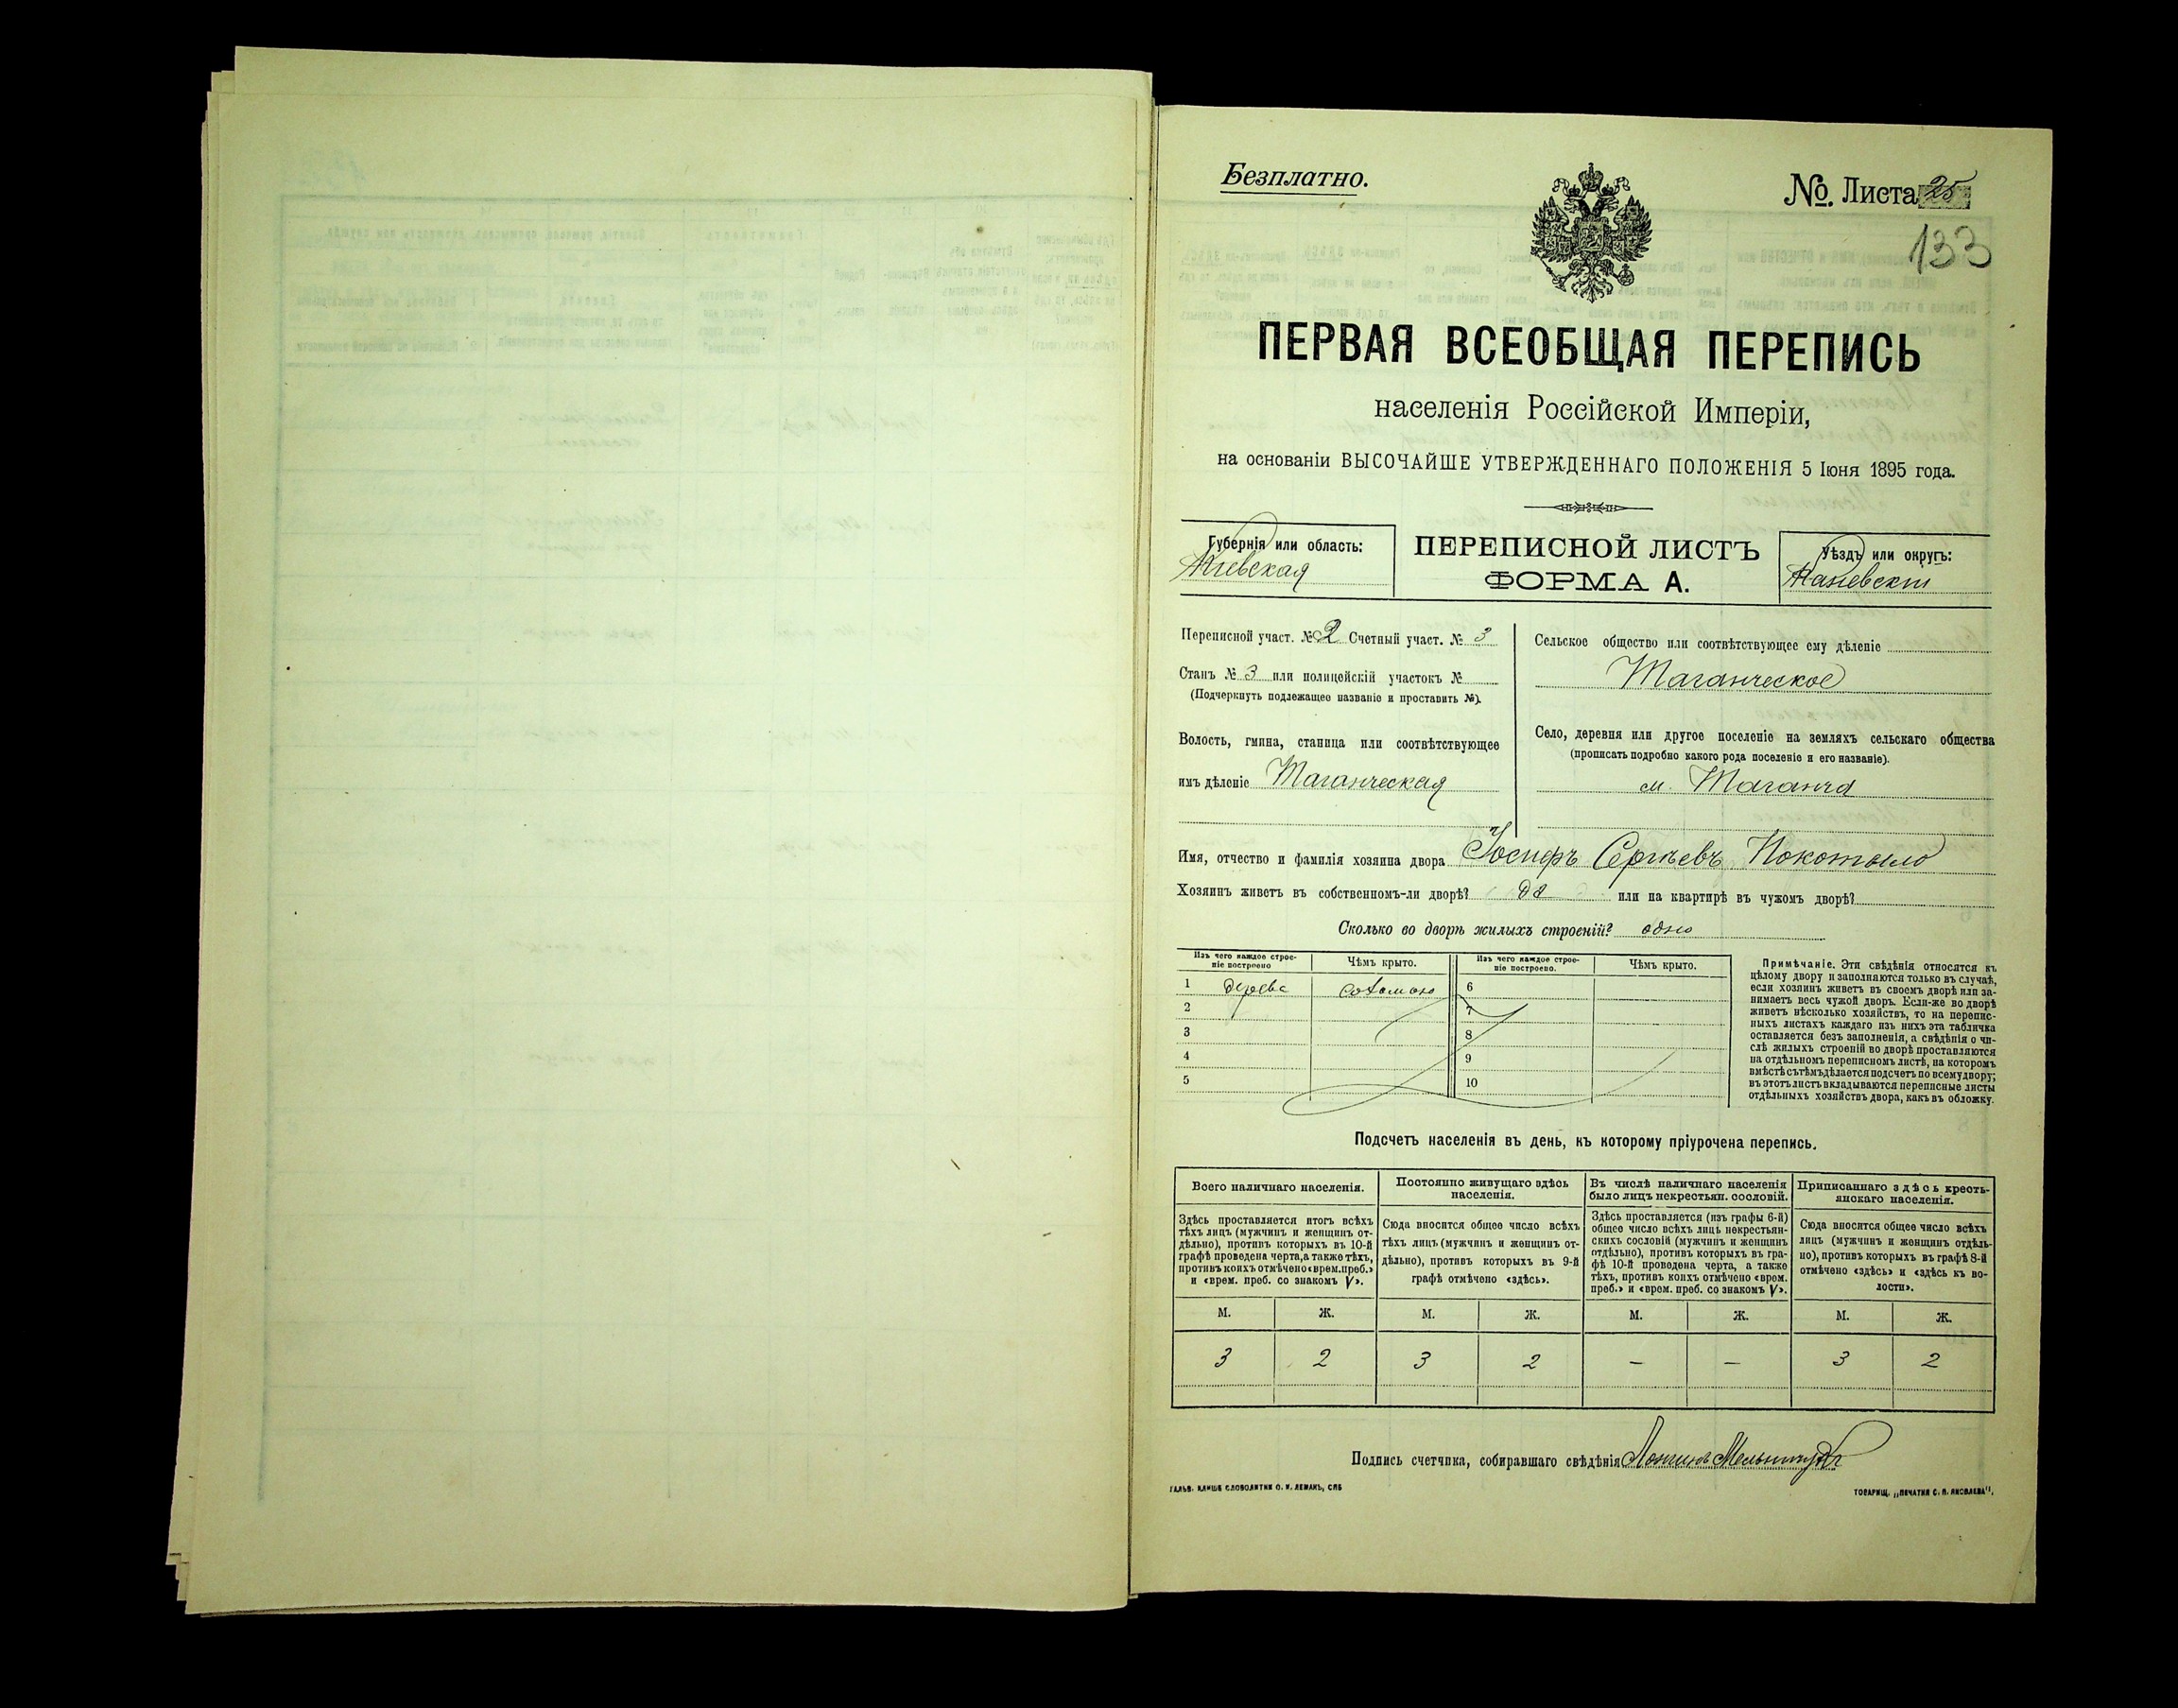 Безплатно.
№. Листа 25
133
ПЕРВАЯ ВСЕОБЩАЯ ПЕРЕПИСЬ
населенія Россійской Имперіи,
на основаніи ВЫСОЧАЙШЕ УТВЕРЖДЕННАГО ПОЛОЖЕНІЯ 5 Іюня 1895 года.
Губернія или область:
Кіевская
ПЕРЕПИСНОЙ ЛИСТЪ
ФОРМА А.
Уѣздъ или округъ:
Каневскій
Переписной участ. № 2 Счетный участ. № 3
Станъ № 3 или полицейскій участокъ №
(Подчеркнуть подлежащее названіе и проставить №).
Волость, гмина, станица или соотвѣтствующее
имъ дѣленіе Таганческая
Сельское общество или соотвѣтствующее ему дѣленіе
Таганческое
Село, деревня или другое поселеніе на земляхъ сельскаго общества
(прописать подробно какого рода поселеніе и его названіе).
м. Таганча
Имя, отчество и фамилія хозяина двора Іосифъ Сергѣевъ Покотыло
Хозяинъ живетъ въ собственномъ-ли дворѣ? да или на квартирѣ въ чужомъ дворѣ?
Сколько во дворѣ жилыхъ строеній? одно
Изъ чего каждое строе-
ніе построено
Чѣмъ крыто.
Изъ чего каждое строе-
ніе построено.
Чѣмъ крыто.
1 дерева соломою 6
2 7
3 8
4 9
5 10
Примѣчаніе. Эти свѣдѣнія относятся къ
цѣлому двору и заполняются только въ случаѣ,
если хозяинъ живетъ въ своемъ дворѣ или за-
нимаетъ весь чужой дворъ. Если-же во дворѣ
живетъ нѣсколько хозяйствъ, то на перепис-
ныхъ листахъ каждаго изъ нихъ эта табличка
оставляется безъ заполненія, а свѣдѣнія о чи-
слѣ жилыхъ строеній во дворѣ проставляются
на отдѣльномъ переписномъ листѣ, на которомъ
вмѣстѣ съ тѣмъ дѣлается подсчетъ по всему двору;
въ этотъ листъ вкладываются переписные листы
отдѣльныхъ хозяйствъ двора, какъ въ обложку.
Подсчетъ населенія въ день, къ которому пріурочена перепись.
Всего наличнаго населенія.
Здѣсь проставляется итогъ всѣхъ
тѣхъ лицъ (мужчинъ и женщинъ от-
дѣльно), противъ которыхъ въ 10-й
графѣ проведена черта, а также тѣхъ,
противъ коихъ отмѣчено «врем. преб.»
и «врем. преб. со знакомъ V».
Постоянно живущаго здѣсь
населенія.
Сюда вносится общее число всѣхъ
тѣхъ лицъ (мужчинъ и женщинъ от-
дѣльно), противъ которыхъ въ 9-й
графѣ отмѣчено «здѣсь».
Въ числѣ наличнаго населенія
было лицъ некрестьян. сословій.
Здѣсь проставляется (изъ графы 6-й)
общее число всѣхъ лицъ некрестьян-
скихъ сословій (мужчинъ и женщинъ
отдѣльно), противъ которыхъ въ гра-
фѣ 10-й проведена черта, а также
тѣхъ, противъ коихъ отмѣчено «врем.
преб.» и «врем. преб. со знакомъ V».
Приписаннаго здѣсь кресть-
янскаго населенія.
Сюда вносится общее число всѣхъ
лицъ (мужчинъ и женщинъ отдѣль-
но), противъ которыхъ въ графѣ 8-й
отмѣчено «здѣсь» и «здѣсь къ во-
лости».
М. Ж. М. Ж. М. Ж. М. Ж.
3 2 3 2 — — 3 2
Подпись счетчика, собиравшаго свѣдѣнія
ГАЛЬВ. КЛИШЕ СЛОВОЛИТНИ О. И. ЛЕМАНЪ, СПБ
ТОВАРИЩ. „ПЕЧАТНЯ С. П. ЯКОВЛЕВА".